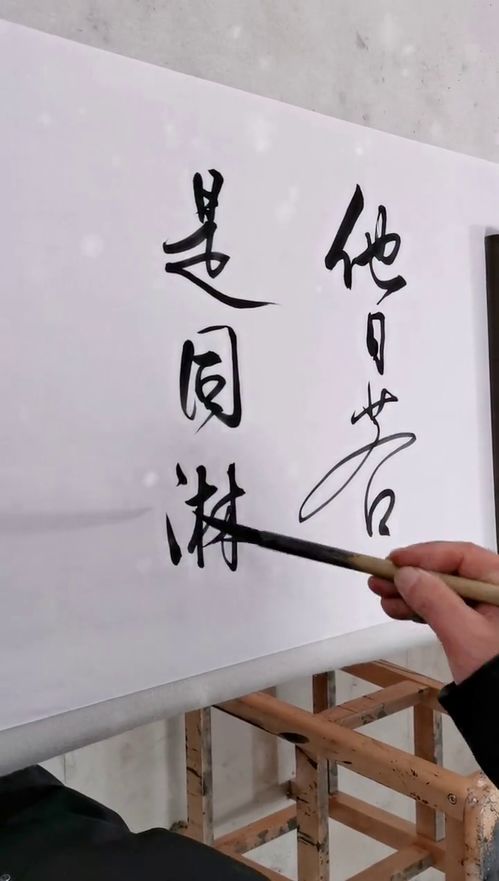 他日若
是同淋